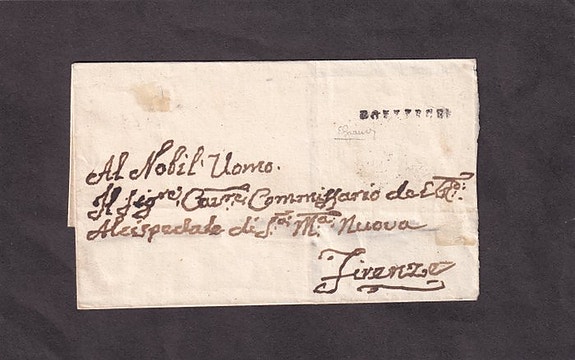 Al Nobil Uomo.
Il Sig.re Cav.re Commissario de
Aleispedale di S.ta M.a Nuova
Firenze